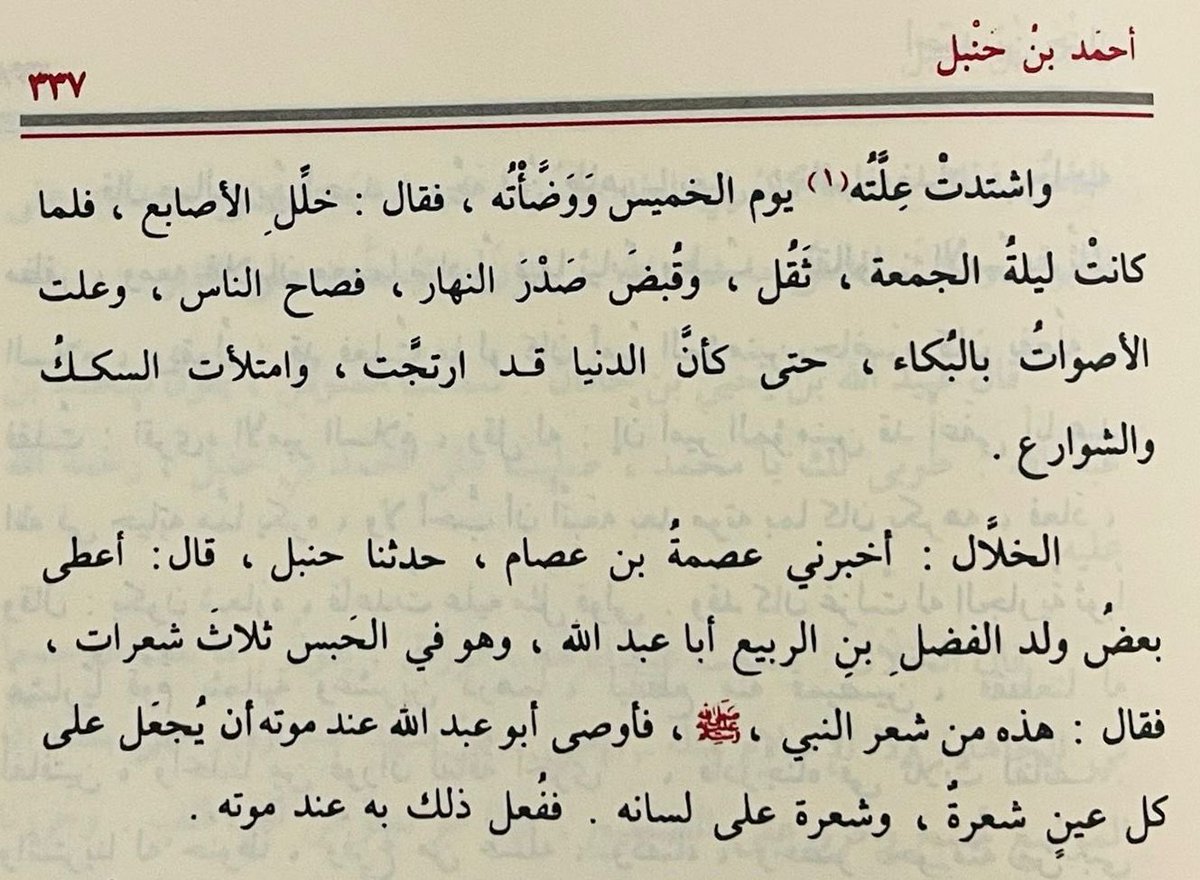 أحمَد بنُ حَنْبل
٣٣٧
واشتدتْ عِلَّتُه(١) يوم الخميس وَوَضَّأْتُه ، فقال : خلِّلِ الأصابع ، فلما
كانتْ ليلةُ الجمعة ، ثَقُل ، وقُبضَ صَدْرَ النهار ، فصاح الناس ، وعلت
الأصواتُ بالبُكاء ، حتى كأنَّ الدنيا قد ارتجَّت ، وامتلأت السككُ
والشوارع .
الخلاَّل : أخبرني عصمةُ بن عصام ، حدثنا حنبل ، قال : أعطى
بعضُ ولد الفضلِ بنِ الربيع أبا عبد الله ، وهو في الحَبس ثلاثَ شعرات ،
فقال : هذه من شعر النبي ، ﷺ ، فأوصى أبو عبد الله عند موته أن يُجعَل على
كل عينٍ شعرةٌ ، وشعرة على لسانه . ففُعل ذلك به عند موته .